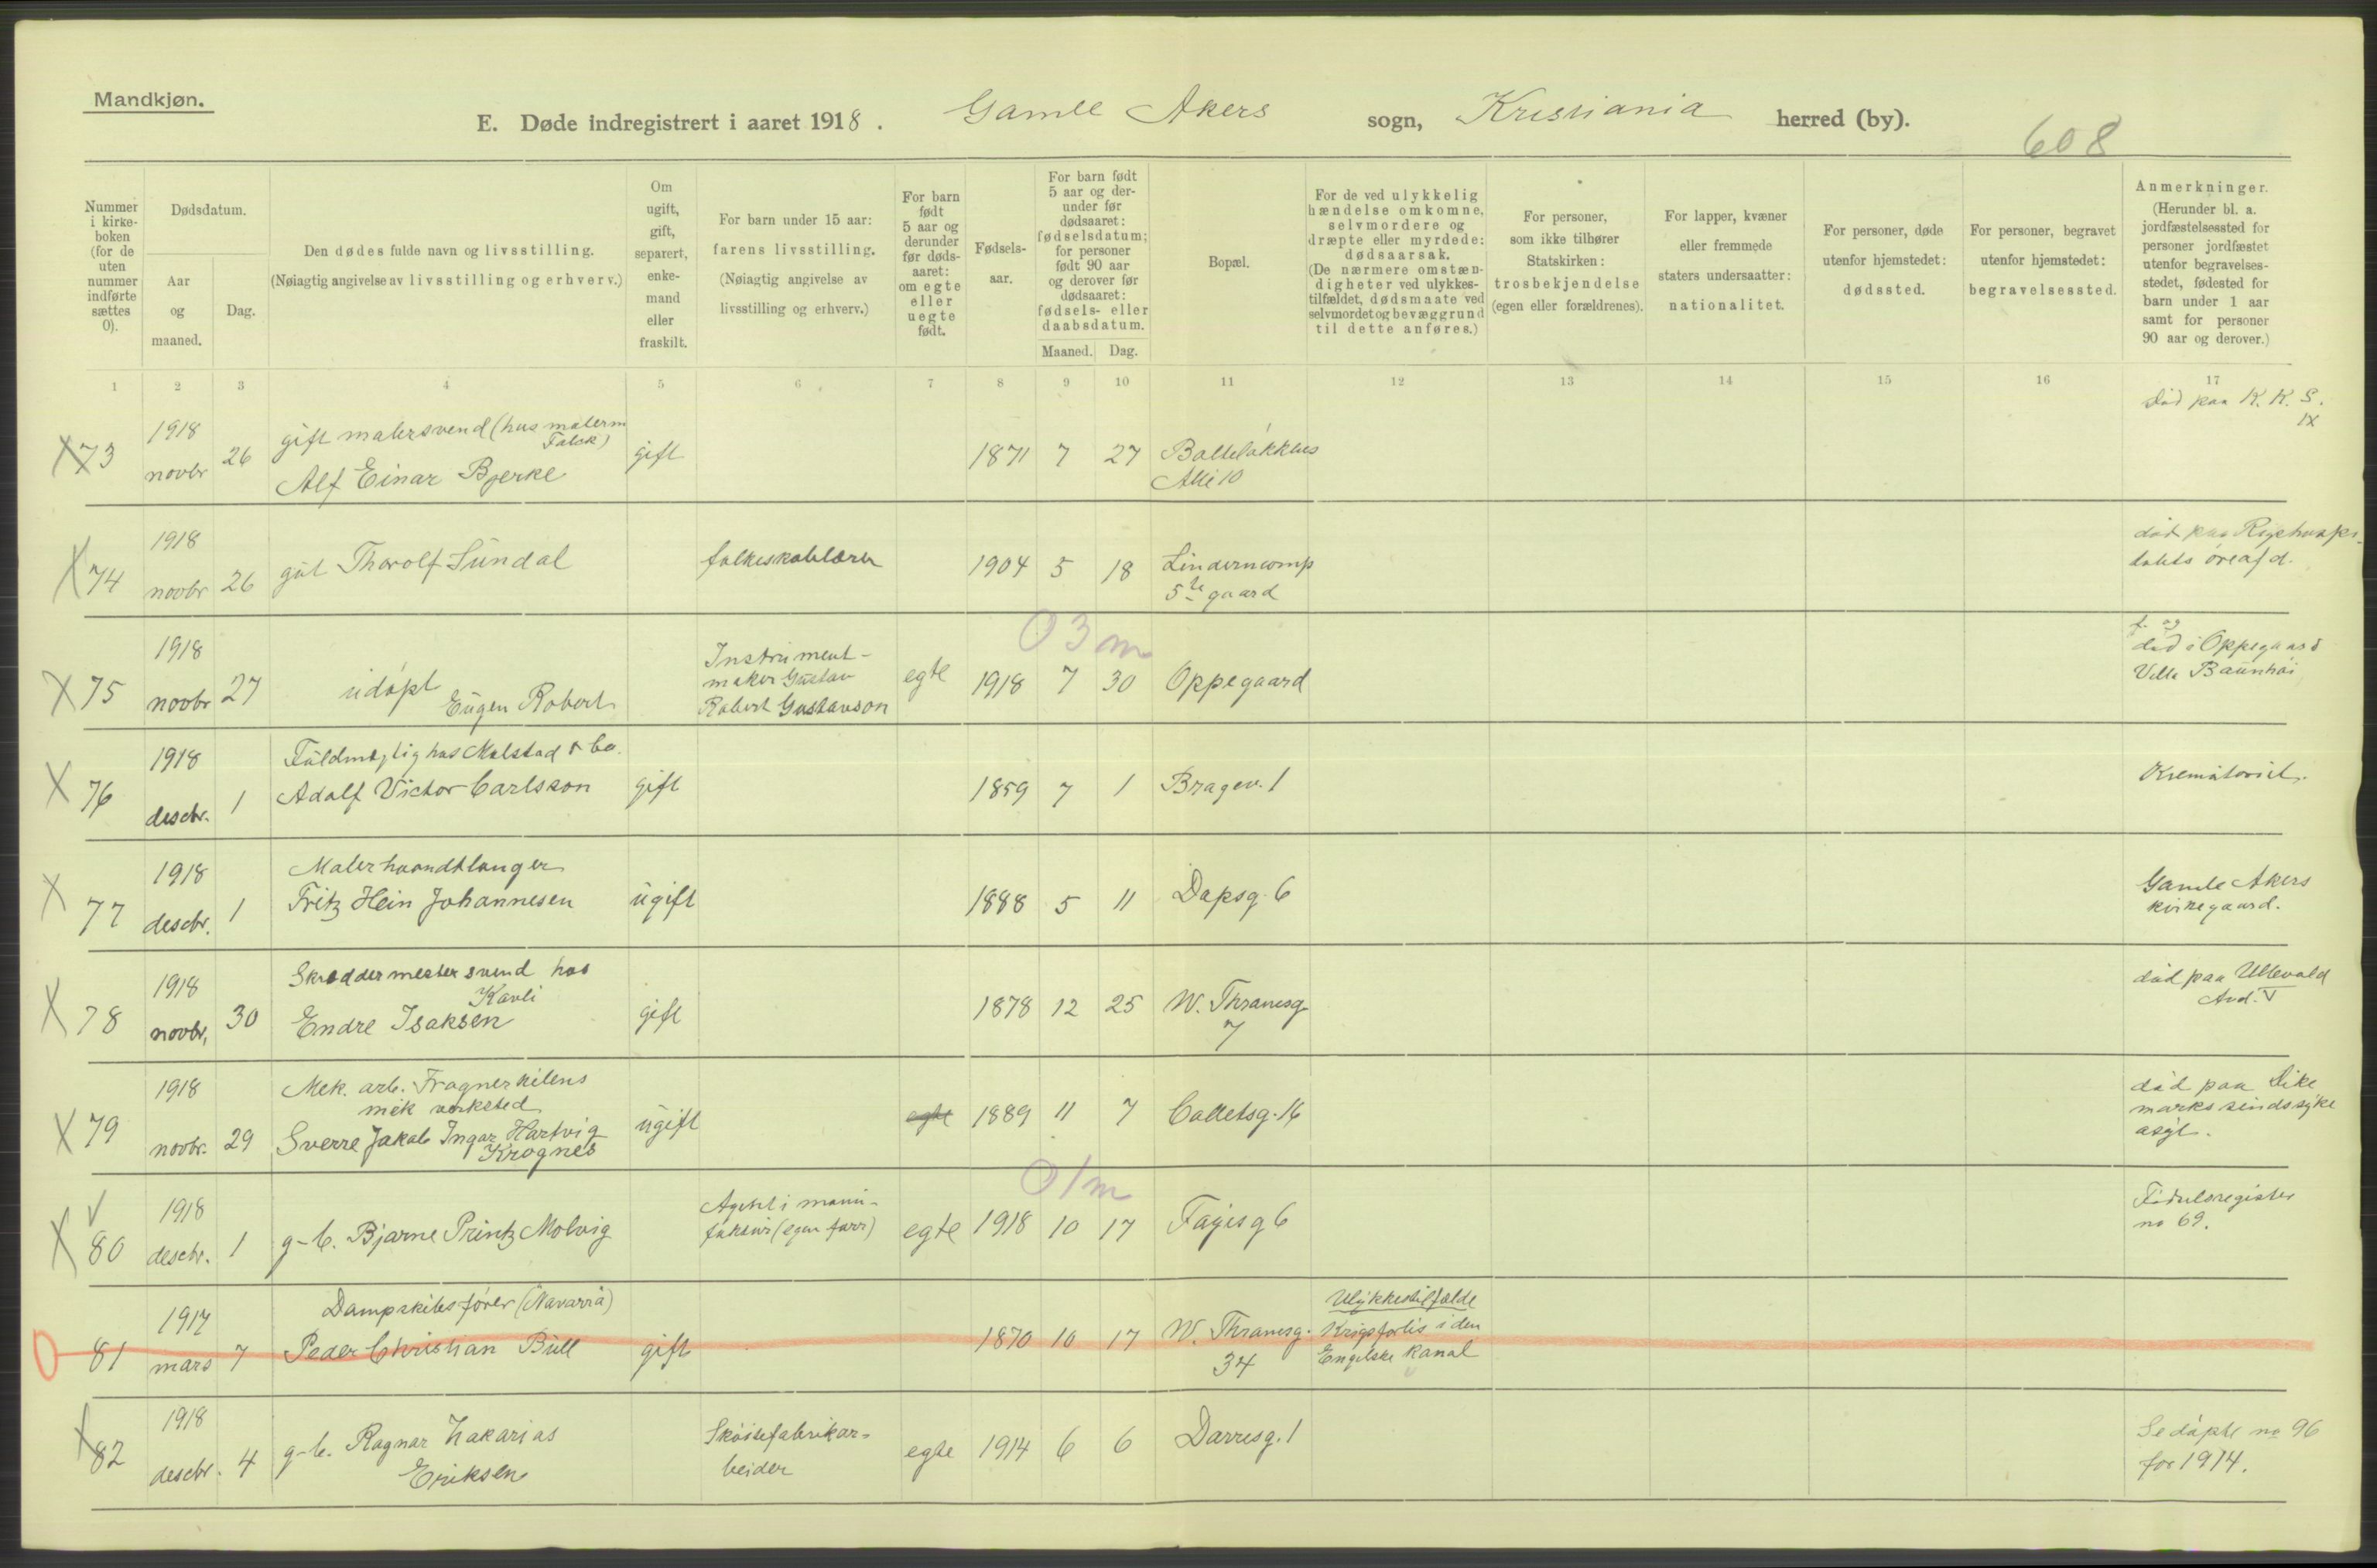 Mandkjøn.
E. Døde indregistrert i aaret 1918. Gamle Akers sogn, Kristiania herred (by).
608
Nummer i kirke-boken (for de uten nummer indførte sættes 0).
Dødsdatum.
Aar og maaned.
Dag.
Den dødes fulde navn og livsstilling.
(Nøiagtig angivelse av livsstilling og erhverv.)
Om ugift, gift, separert, enke-mand eller fraskilt.
For barn under 15 aar:
farens livsstilling.
(Nøiagtig angivelse av livsstilling og erhverv.)
For barn født 5 aar og derunder før døds-aaret: om egte eller uegte født.
Fødsels-aar.
For barn født 5 aar og der-under før dødsaaret: fødselsdatum; for personer født 90 aar og derover før dødsaaret: fødsels- eller daabsdatum.
Maaned. Dag.
Bopæl.
For de ved ulykkelig hændelse omkomne, selvmordere og dræpte eller myrdede: dødsaarsak. (De nærmere omstæn-digheter ved ulykkes-tilfældet, dødsmaate ved selvmordet og bevæggrund til dette anføres.)
For personer, som ikke tilhører Statskirken: trosbekjendelse (egen eller forældrenes).
For lapper, kvæner eller fremmede staters undersaatter: nationalitet.
For personer, døde utenfor hjemstedet: dødssted.
For personer, begravet utenfor hjemstedet: begravelsessted.
Anmerkninger. (Herunder bl. a. jordfæstelsessted for personer jordfæstet utenfor begravelses-stedet, fødested for barn under 1 aar samt for personer 90 aar og derover.)
1 2 3 4 5 6 7 8 9 10 11 12 13 14 15 16 17
X 73 1918 novbr 26 gift malersvend (hos malerm Falck)
Alf Einar Bjerke gift 1871 7 27 Balleløkkens Alle 10 Død paa K. K. S. IX
X 74 1918 novbr 26 gut Thorolf Sundal folkeskolelærer 1904 5 18 Linderncomp 5te gaard død paa Rigshospi-talets øreafd.
03 m
X 75 1918 novbr 27 udøpt Eugen Robert Instrument-maker Gustav Robert Gustavson egte 1918 7 30 Oppegaard f. og død i Oppegaard Villa Baunhøi
X 76 1918 descbr. 1 Fuldmegtig hos Malstad & Co.
Adolf Victor Carlsson gift 1859 7 1 Bragev. 1 Krematoriet.
X 77 1918 descbr. 1 Malerhaandlanger
Fritz Hein Johannesen ugift 1888 5 11 Dapsg. 6 Gamle Akers kirkegaard.
X 78 1918 novbr. 30 Skreddermestersvend hos Kavli
Endre Isaksen gift 1878 12 25 W. Thranesg 7 død paa Ullevold Avd. V
X 79 1918 novbr. 29 Mek. arb. Frognerkilens mek verksted
Sverre Jakob Ingar Hartvig Krognes ugift egte 1889 11 7 Colletsg. 16 død paa Dike marks sindssyke asyl.
01 m
X 80 1918 descbr. 1 g-b. Bjarne Printz Molvig Agent i manu-faktur (egen forr) egte 1918 10 17 Fayesg 6 Fødselsregister no 69.
0 81 1917 mars 7 Dampskibsfører (Navarra)
Peder Christian Bull gift 1870 10 17 W. Thranesg. 34 Ulykkestilfælde Krigsforlis i den Engelske kanal
X 82 1918 descbr. 4 g-b. Ragnar Zakarias Eriksen Skoitefabrikar-beider egte 1914 6 6 Darresg. 1 Se døpte no 96 for 1914.